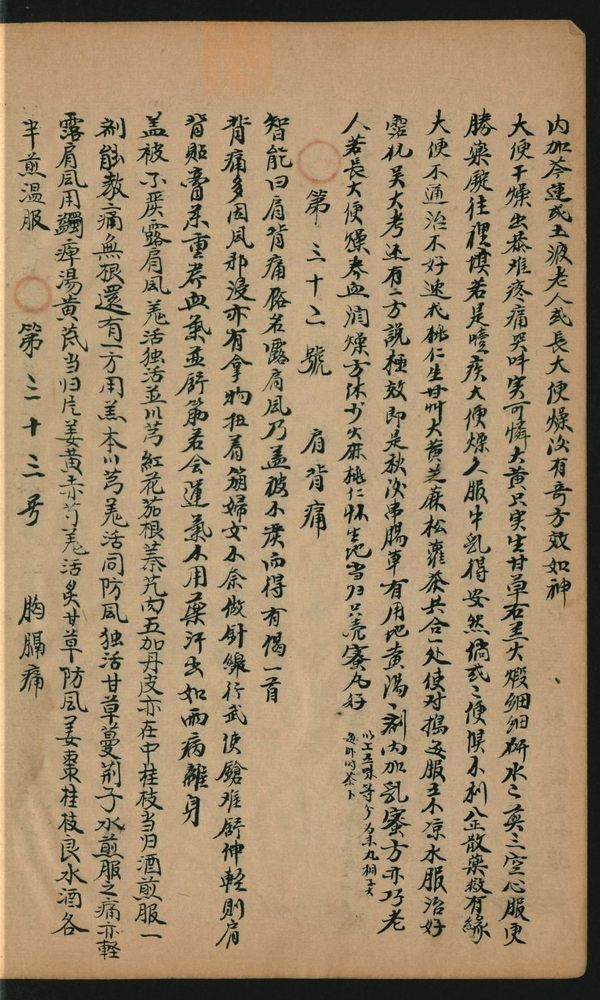 内加芩連或五液老人或長大便燥没有奇方效如神
大便干燥出恭难疼痛哭叫实可憐大黄只实生甘草石羔火煅细细研水之煎三空心服便
勝藥症往裡填若是噎疾大便燥久服牛乳得安然倘或二便俱不利八正散藥救有緣
大便不通治不好速找桃仁生甘艸大黄芝麻松蘿茶共合一处使对搗每服五水凉水服治好
還有二方說極效即是秋没串腸車有用地黄湯一剤内加乳蜜方亦巧老
人若長大便燥养血潤燥方休少火麻桃仁怀生地当归只壳蜜丸好
以上五味等分为末丸桐子大
每卄田茶卜
第三十二號 肩背痛
智能曰肩背痛俗名露肩風乃盖被不嚴而得有偈一首
背痛多因風邪浸亦有拿物扭着筋婦女不会做針線行武使鎗难舒伸輕則肩
背貼膏藥重养血氣並舒筋若会運氣不用藥汗出如雨病離身
盖被不嚴露肩風羗活独活並川芎紅花茄根蓁艽肉五加丹皮亦在中桂枝当归酒煎服一
剤能教痛無根還有一方用羔本川芎羗活同防風独活甘草蔓荆子水煎服之痛亦軽
露肩風用蠲痺湯黄芪当归片姜黄赤芍羗活炙甘草防風姜棗桂枝良水酒各
半煎温服
第三十三号 胸膈痛